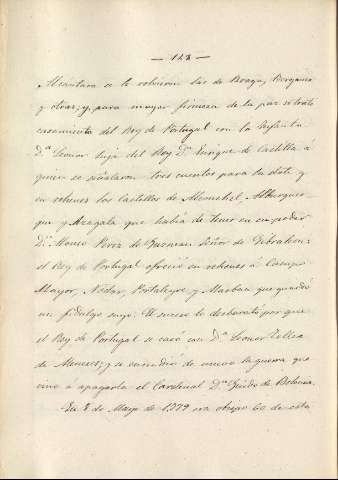 — 123 —
Alcántara se le volvieron las de Braga, Berganza
y otras; y, para mayor firmeza de la paz se trató
casamiento del Rey de Portugal con la Infanta
D.ª Leonor hija del Rey D.n Enrique de Castilla á
quien se señalaron tres cuentos para la dote y
en rehenes los Castillos de
que y Azagala que había de tener en su poder
D.n Alonso Perez de Guzman Señor de Gibraleon:
el Rey de Portugal ofreció en rehenes á Campo
Mayor, Nodar, Portalegre y Marbao que guardó
un fidalgo suyo: El suceso lo desbarató por que
el Rey de Portugal se casó con D.ª Leonor Tellez
de Meneses; y se encendió de nuevo la guerra que
vino á apagarla el Cardenal D.n Guido de Bolonia.
En 8 de Mayo de 1379 era obispo de esta